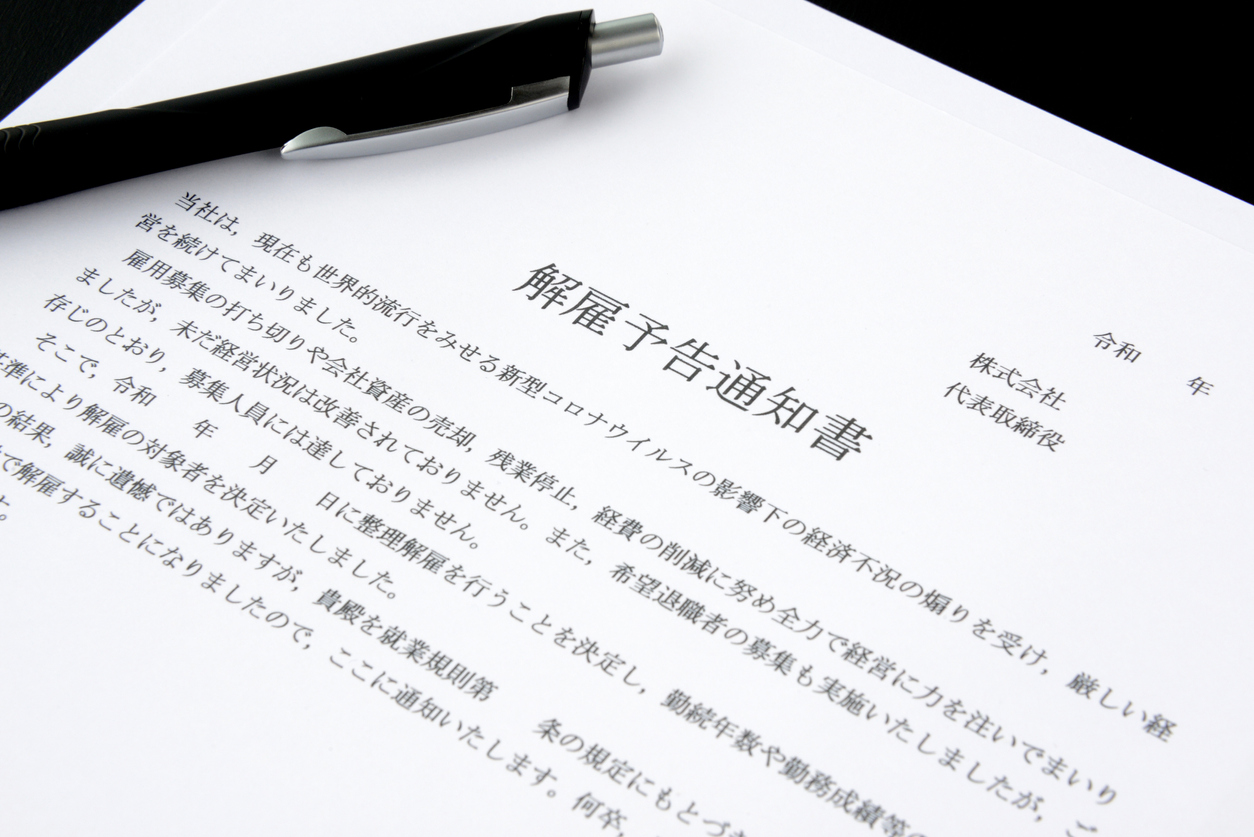 令和　　年
株式会社
代表取締役
解雇予告通知書
当社は，現在も世界的流行をみせる新型コロナウイルスの影響下の経済不況の煽りを受け，厳しい経
営を続けてまいりました。
雇用募集の打ち切りや会社資産の売却，残業停止，経費の削減に努め全力で経営に力を注いでまいり
ましたが，未だ経営状況は改善されておりません。また，希望退職者の募集も実施いたしましたが，ご
存じのとおり，募集人員には達しておりません。
そこで，令和　　年　　月　　日に整理解雇を行うことを決定し，勤続年数や勤務成績等の
準により解雇の対象者を決定いたしました。
の結果，誠に遺憾ではありますが，貴殿を就業規則第　　条の規定にもとづき
で解雇することになりましたので，ここに通知いたします。何卒，
す。